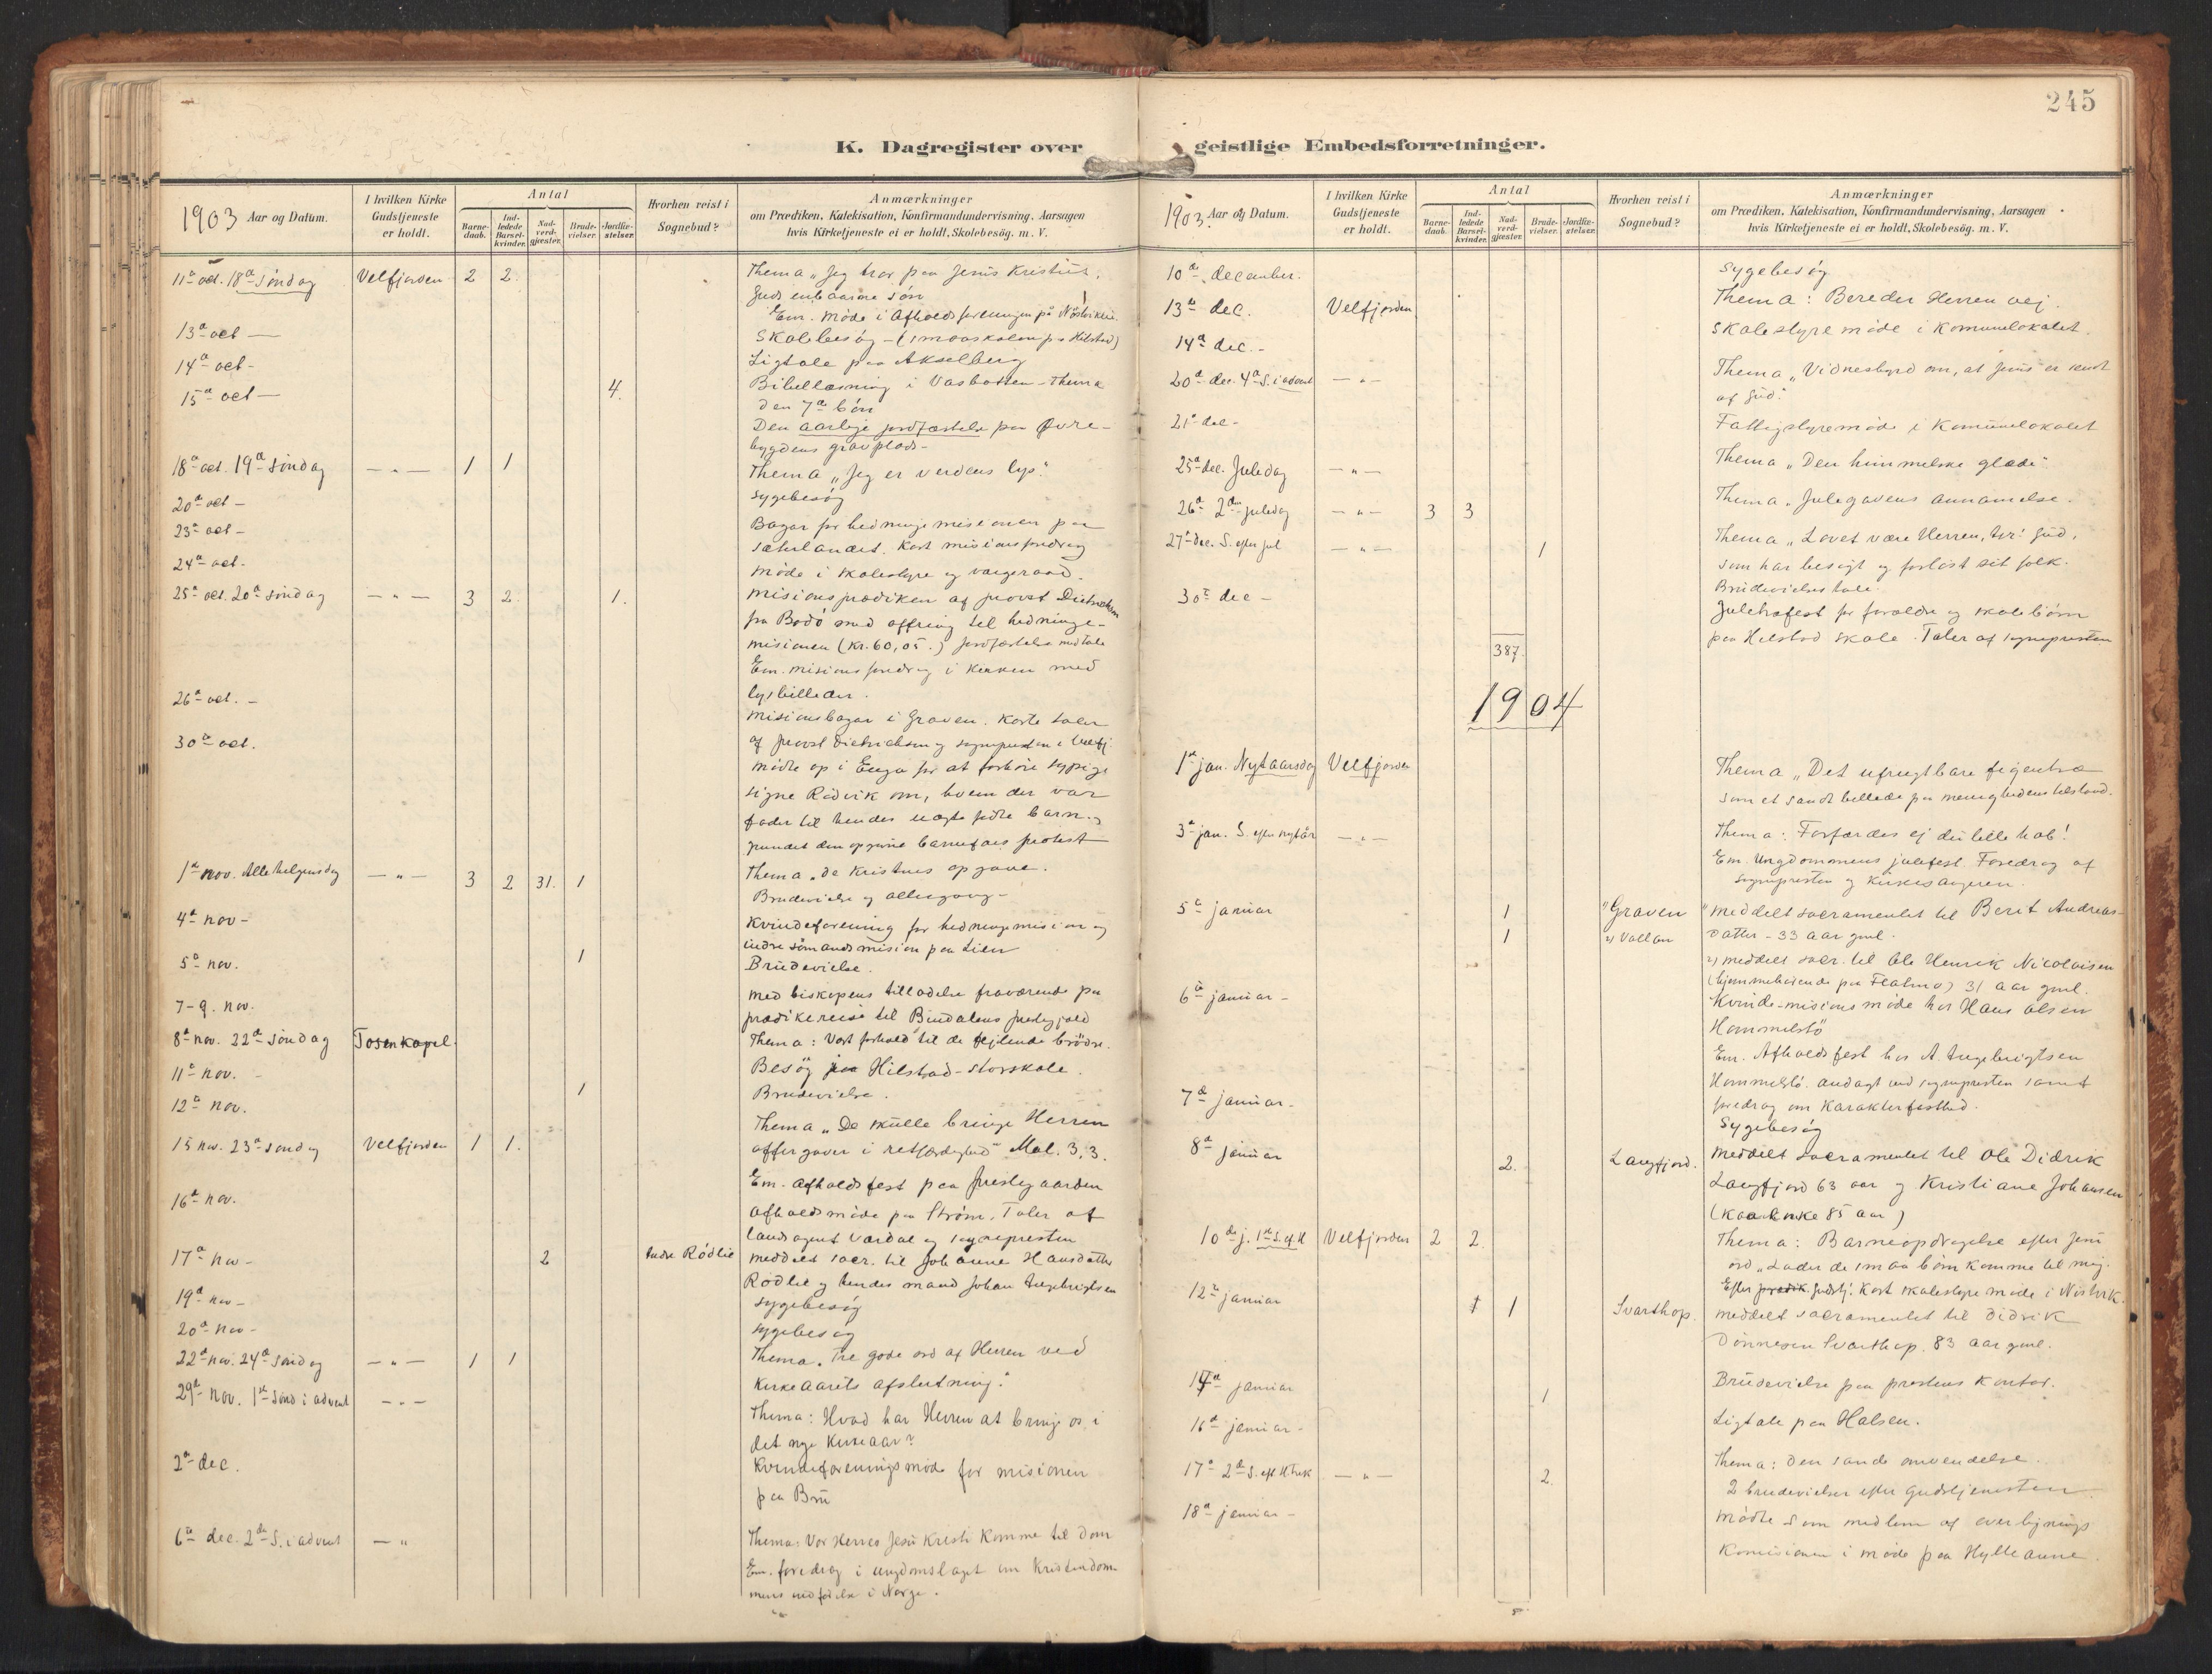 245
K. Dagregister over geistlige Embedsforretninger.
1903 Aar og Datum.
I hvilken Kirke Gudstjeneste er holdt.
Antal
Barnedaab.
Indledede Barselkvinder.
Nadverdgjæster.
Brudevielser.
Jordfæstelser.
Hvorhen reist i Sognebud?
Anmærkninger
om Prædiken, Katekisation, Konfirmandundervisning, Aarsagen
hvis Kirketjeneste ei er holdt, Skolebesög. m. V.
11te oct. 18de söndag Velfjorden 2 2. Thema „Jeg tror paa Jesus Kristus,
Guds enbaarne sön
Em. Möde i Afholdsforeningen på
13de oct — Skolebesög - (smaaskolen paa Hilstad)
14de oct - Ligtale paa Akselberg
15de oct — 4. Bibellæsning i Vasbotten - Thema
den 7de bön
Den aarlige jordfæstelse paa Øvre-
bygdens gravplads -
18de oct. 19de söndag — „ — 1 1 Thema „Jeg er verdens lys."
20de oct - Sygebesög
23de oct - Bazar for hedningemisionen paa
24de oct. Möde i skolestyre og værgeraad.
25de oct. 20de söndag — „ — 3 2. 1. Misionsprædiken af provst Dietrichson
fra Bodö med offring til hedninge-
misionen (kr. 60,05.) jordfæstelse med tale
Em. misionsforedrag i kirken med
lysbilleder.
26de oct. - Misionsbazar i Graven. Korte taler
af provst Dietrichson og sognepresten i Velfj.
30te oct. Mödte op i Enga for at forhöre
Signe Rödvik om, hvem der var
fader til hendes uægte födte barn
grundet den opgivne barnefars protest
1ste nov. Allehelgensdag — „ — 3 2 31. 1 Thema „De kristnes opgave.
Brudevielse og altergang -
4de nov - Kvindeforening for hedningemision og
indre sömandsmision paa Lien
5te nov. 1 Brudevielse.
7-9. nov. Med biskopens tilladelse fraværende paa
prædikereise til Bindalens prestegjeld
8de nov. 22de söndag Tosen kapel. Thema: Vort forhold til de fejlende brödre.
11te nov. - Besög paa Hilstad - storskole.
12te nov. 1 Brudevielse.
15 nov. 23de söndag Velfjorden 1 1. Thema „De skulle bringe Herren
offergaver i retfærdighed" Mal. 3,3.
Em. afholdsfest paa prestegaarden
16de nov. Afholdsmöde paa Ström. Taler af
landsagent Værdal og sognepresten
17de nov - 2 Indre Rödlie Meddelt sacr. til Johanne Hansdatter
Rödlie og hendes mand Johan Ingebrigtsen
19de nov - Sygebesög
20de nov - Sygebesög
22de nov. 24de söndag — „ — 1 1 Thema „Tre gode ord af Herren ved
kirkeaarets afslutning."
29de nov. 1ste sönd i advent — „ — Thema: Hvad har Herren at bringe os i
det nye kirkeaar?
2de dec. Kvindeforeningsmöde for misionen
paa Bru
6te dec. 2den S. i advent — „ Thema: Vor Herres Jesu Kristi komme til dom
Em. foredrag i ungdomslaget om kristendom-
mens indförelse i Norge.
1903. Aar og Datum.
I hvilken Kirke Gudstjeneste er holdt.
Antal
Barnedaab.
Indledede Barselkvinder.
Nadverdgjæster.
Brudevielser.
Jordfæstelser.
Hvorhen reist i Sognebud?
Anmærkninger
om Prædiken, Katekisation, Konfirmandundervisning, Aarsagen
hvis Kirketjeneste ei er holdt, Skolebesög. m. V.
10de december. Sygebesög
13de dec. Velfjorden Thema: Bereder Herren vej.
14de dec. - Skolestyremöde i Komunelokalet.
20de dec. 4de S. i advent — „ — Thema „Vidnesbyrd om, at Jesus er sendt
af Gud."
21de dec - Fattigstyremöde i Komunelokalet
25de dec. Juledag — „ — Thema „Den himmelske glæde"
26de 2den juledag — „ — 3 3 Thema „Julegavens annamelse.
27de dec. S. efter jul — „ — 1 Thema „Lovet være Herren, Isr: Gud,
som har besögt og forlöst sit folk.
Brudevielsestale.
30te dec - Juletrefest for forældre og skolebörn
paa Hilstad skole. Taler af sognepresten
387.
1904
1ste jan. Nytaarsdag Velfjorden Thema „Det ufrugtbare figentræ
som et sandt billede paa menighedens tilstand.
3de jan. S. efter nytår — „ — Thema: Forfærdes ej du lille hob!
Em. Ungdommens julefest. Foredrag af
sognepresten og kirkesangeren.
5te januar 1 "Graven "Meddelt sacramentet til Berit Andreas-
1 2) Vollan datter - 33 aar gml.
2) Meddelt sacr. til Ole Henrik Nicolaisen
(hjemmehörende paa ) 31 aar gml.
6te januar - Kvinde-misionsmöde hos Hans Olsen
Hommelstö
Em. Afholdsfest hos A. Ingebrigtsen
Hommelstö. andagt ved sognepresten samt
foredrag om karakterfasthed.
7de januar - Sygebesög
8de januar 2. Langfjord. Meddelt sacramentet til Ole Didrik
Langfjord 63 aar og Kristiane Johansen
(kaarenke 85 aar)
10de j. 1ste S. ef H Velfjorden 2 2. Thema: Barneopdragelse efter Jesu
ord „Lader de smaa börn komme til mig.
Efter prædik. gudstj. kort skolestyremöde i
12te januar 1 1 Svarthop. Meddelt sacramentet til Didrik
Dönnesen Svarthop. 83 aar gml.
14de januar 1 Brudevielse paa prestens kontor.
16de januar - Ligtale paa Halsen.
17de 2den S. eft H. trek — „ — 2 Thema: Den sande omvendelse.
2 brudevielser efter gudstjenesten
18de januar - Mödte som medlem af overlignings
komisionen i möde paa Hylleanne.